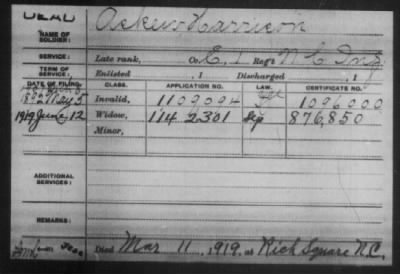 DEAD
NAME OF SOLDIER: Askew Harrison
SERVICE: Late rank, Co. E, 1 Reg't N C Inf
TERM OF SERVICE: Enlisted , 1 Discharged , 1
DATE OF FILING. CLASS. APPLICATION NO. LAW. CERTIFICATE NO.
May 5 Invalid, 1109094 1096000
1919 June 12 Widow, 1142301 876,850
Minor,
ADDITIONAL SERVICES:
REMARKS:
Died Mar 11, 1919, at Rich Square N.C.